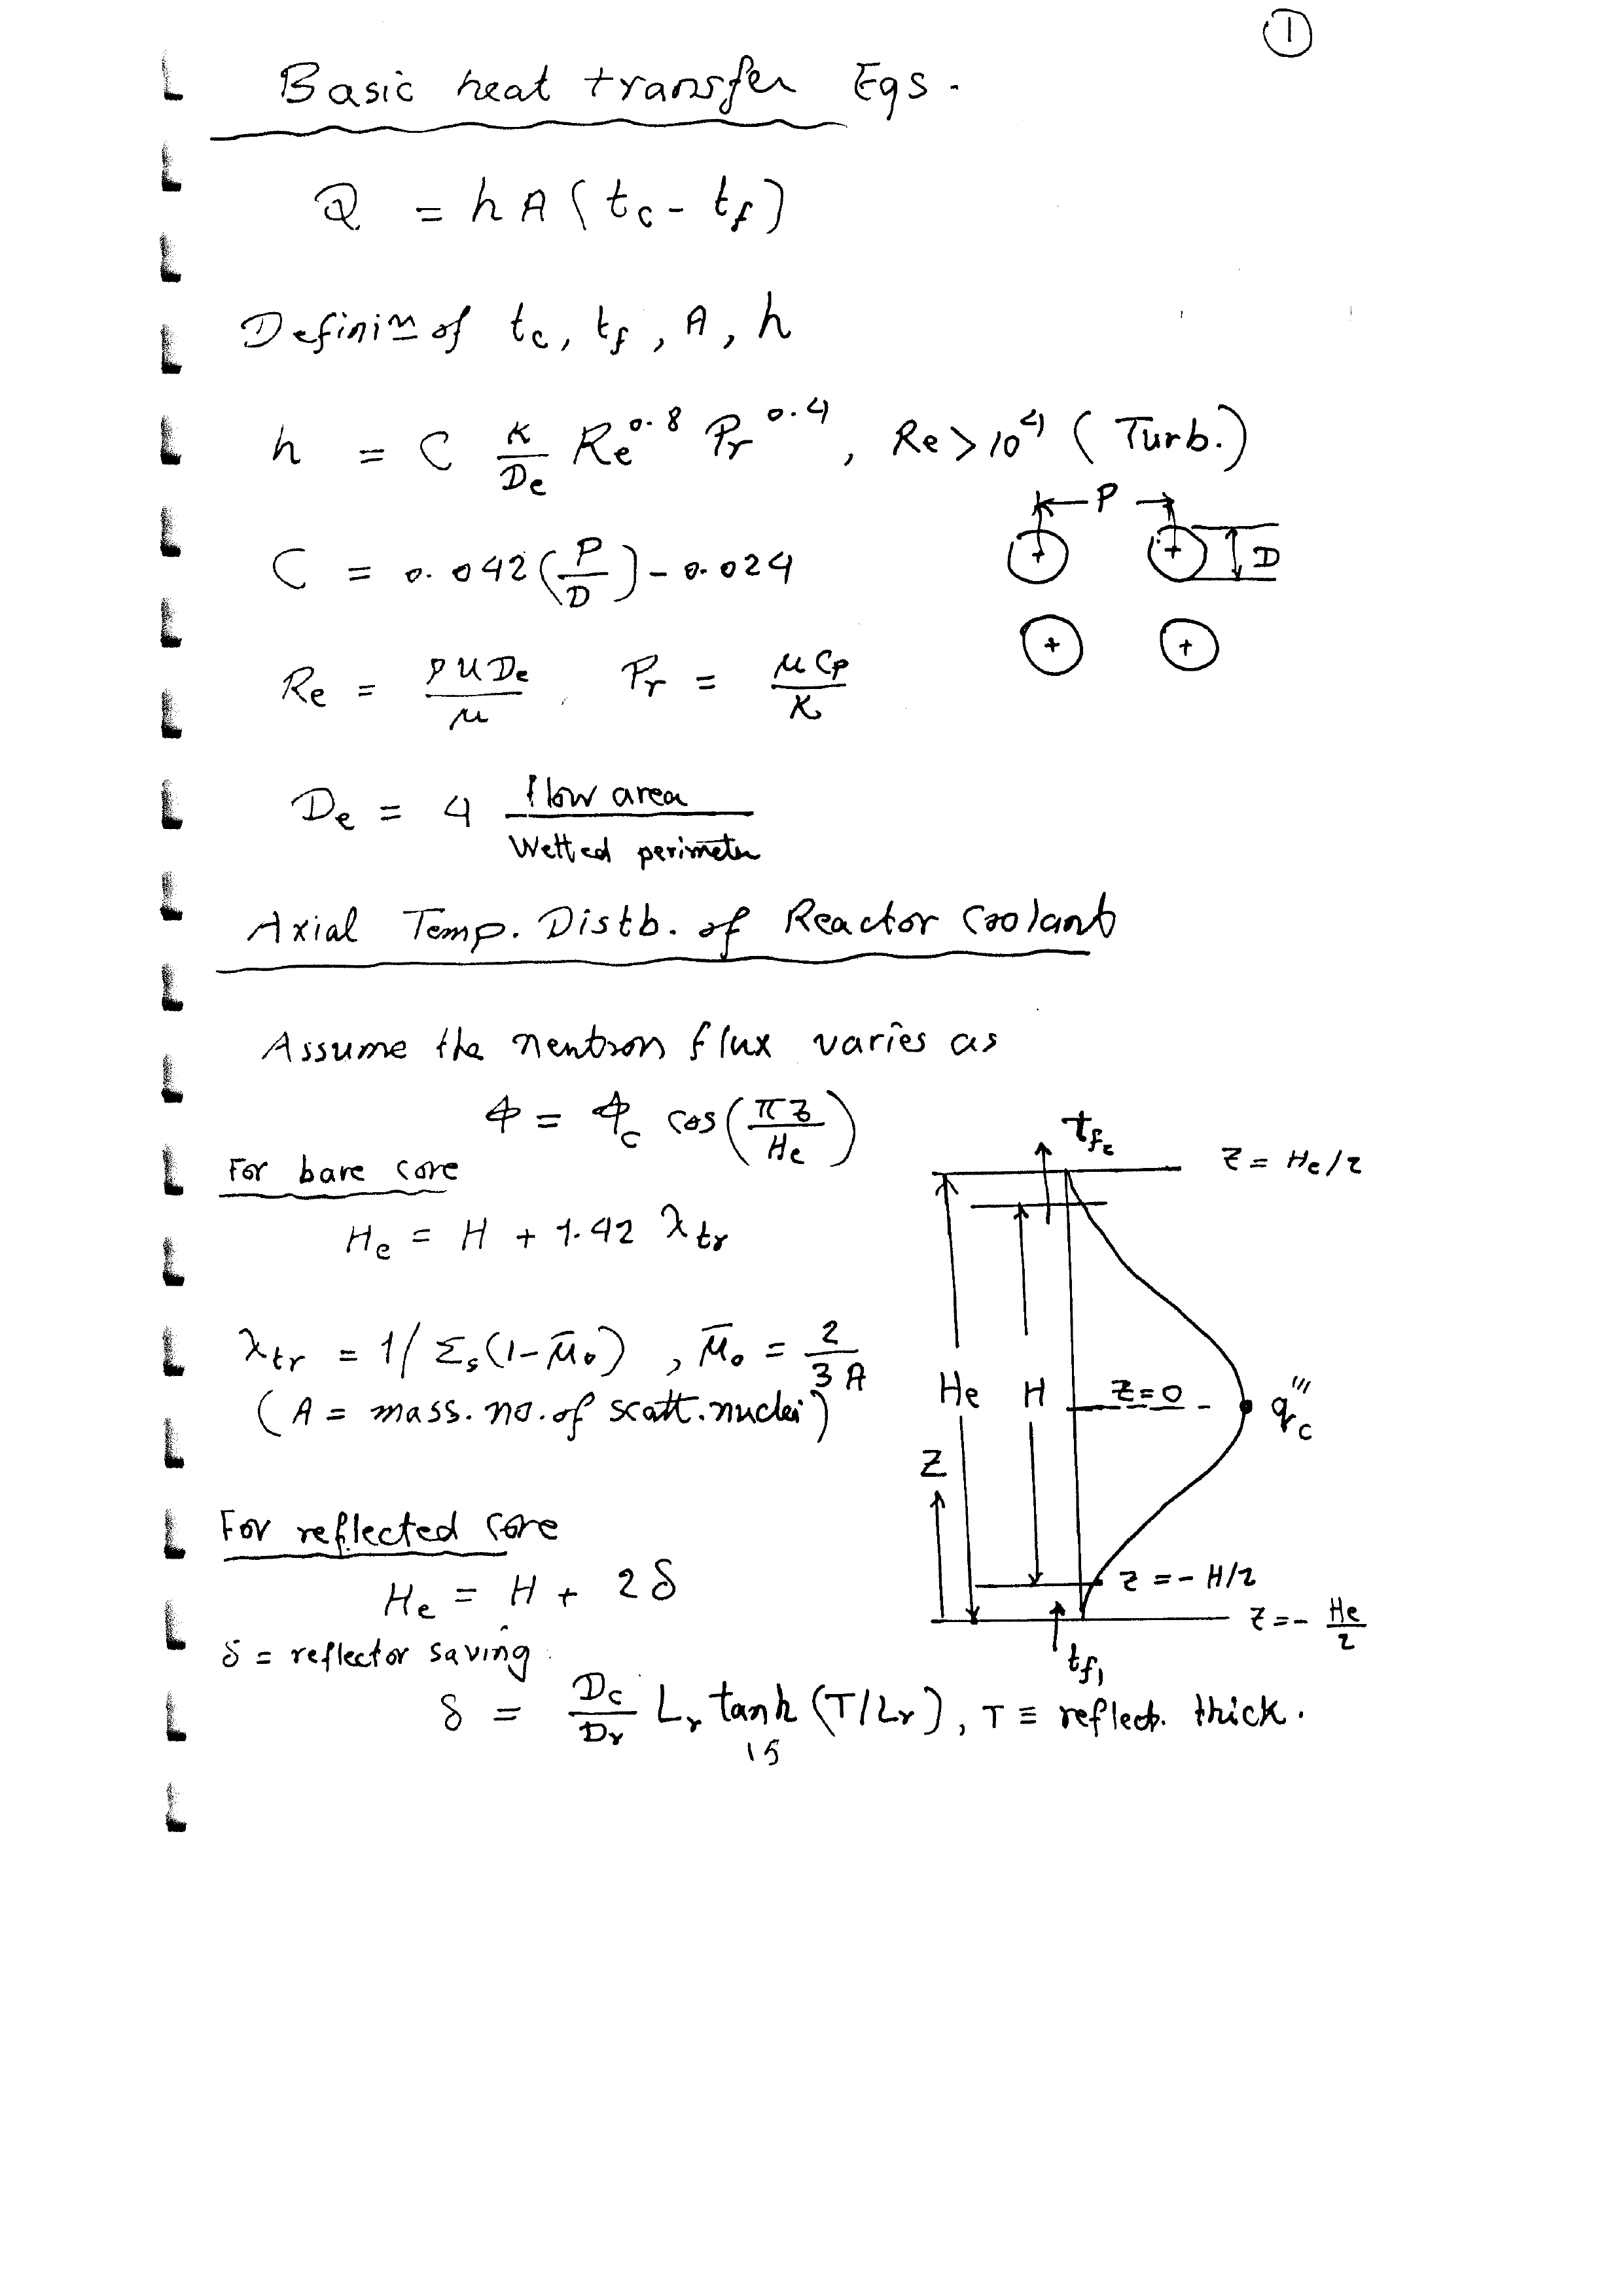 ①
Basic heat transfer Eqs.
Q = hA(tc - tf)
Definin of tc, tf, A, h
h = C K/De Re^0.8 Pr^0.4, Re > 10^4 (Turb.)
P
D
C = 0.042(P/D) - 0.024
Re = ρUDe/μ, Pr = μCp/K
De = 4 flow area/Wetted perimeter
Axial Temp. Distb. of Reactor Coolant
Assume the neutron flux varies as
Φ = Φc cos(πz/He)
For bare core
He = H + 1.42 λtr
λtr = 1/Σs(1-μ̄o), μ̄o = 2/3A
(A = mass. no. of scatt. nuclei)
tf2
z = He/2
He
H
z=0
q'''c
z
z = -H/2
z = -He/2
tf1
For reflected core
He = H + 2δ
δ = reflector saving
δ = Dc/Dr Lr tanh(T/Lr), T ≡ reflect. thick.
15